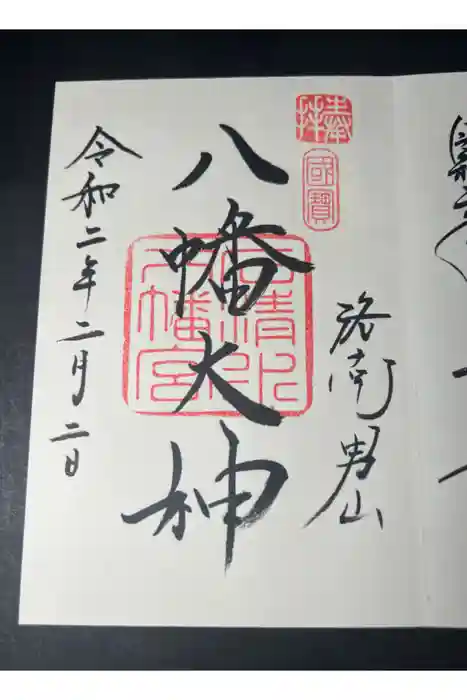 奉拝
國寶
洛南男山
八幡大神
石清水八幡宮
令和二年二月二日